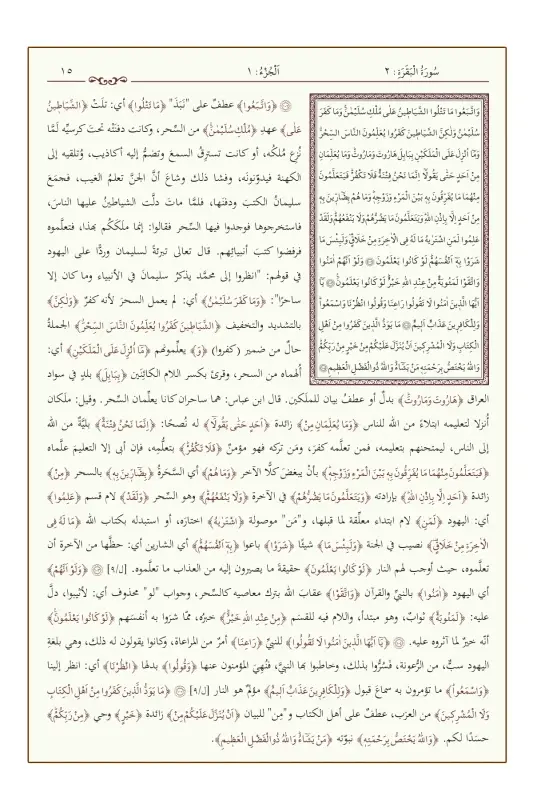 سُورَةُ الْبَقَرَةِ: ٢
اَلْجُزْءُ: ١
١٥
وَاتَّبَعُوا مَا تَتْلُوا الشَّيَاطِينُ عَلَى مُلْكِ سُلَيْمٰنَۚ وَمَا كَفَرَ
سُلَيْمٰنُ وَلٰكِنَّ الشَّيَاطِينَ كَفَرُوا يُعَلِّمُونَ النَّاسَ السِّحْرَۗ
وَمَٓا اُنْزِلَ عَلَى الْمَلَكَيْنِ بِبَابِلَ هَارُوتَ وَمَارُوتَۜ وَمَا يُعَلِّمَانِ
مِنْ اَحَدٍ حَتّٰى يَقُولَٓا اِنَّمَا نَحْنُ فِتْنَةٌ فَلَا تَكْفُرْۜ فَيَتَعَلَّمُونَ
مِنْهُمَا مَا يُفَرِّقُونَ بِهِ بَيْنَ الْمَرْءِ وَزَوْجِهِۜ وَمَا هُمْ بِضَٓارِّينَ بِهِ
مِنْ اَحَدٍ اِلَّا بِاِذْنِ اللّٰهِۜ وَيَتَعَلَّمُونَ مَا يَضُرُّهُمْ وَلَا يَنْفَعُهُمْۜ وَلَقَدْ
عَلِمُوا لَمَنِ اشْتَرٰيهُ مَا لَهُ فِي الْاٰخِرَةِ مِنْ خَلَاقٍۜ وَلَبِئْسَ مَا
شَرَوْا بِهِٓ اَنْفُسَهُمْۜ لَوْ كَانُوا يَعْلَمُونَ ۝ وَلَوْ اَنَّهُمْ اٰمَنُوا
وَاتَّقَوْا لَمَثُوبَةٌ مِنْ عِنْدِ اللّٰهِ خَيْرٌۜ لَوْ كَانُوا يَعْلَمُونَ ۝ يَٓا
اَيُّهَا الَّذِينَ اٰمَنُوا لَا تَقُولُوا رَاعِنَا وَقُولُوا انْظُرْنَا وَاسْمَعُواۜ
وَلِلْكَافِرِينَ عَذَابٌ اَلِيمٌ ۝ مَا يَوَدُّ الَّذِينَ كَفَرُوا مِنْ اَهْلِ
الْكِتَابِ وَلَا الْمُشْرِكِينَ اَنْ يُنَزَّلَ عَلَيْكُمْ مِنْ خَيْرٍ مِنْ رَبِّكُمْۜ
وَاللّٰهُ يَخْتَصُّ بِرَحْمَتِهِ مَنْ يَشَٓاءُۜ وَاللّٰهُ ذُو الْفَضْلِ الْعَظِيمِ ۝
۝ ﴿وَاتَّبَعُوا﴾ عطفٌ على "نَبَذَ" ﴿مَا تَتْلُوا﴾ أي: تلَتْ ﴿الشَّيَاطِينُ
عَلَى﴾ عهدِ ﴿مُلْكِ سُلَيْمٰنَۚ﴾ من السِّحر، وكانت دفنَتْه تحت كرسيِّه لَمَّا
نُزِع مُلكُه، أو كانت تسترِقُ السمعَ وتضمُّ إليه أكاذيب، وتُلقيه إلى
الكهنة فيدوّنونَه، وفشا ذلك وشاعَ أنَّ الجنَّ تعلمُ الغيب، فجمَعَ
سليمانُ الكتبَ ودفنَها، فلمَّا ماتَ دلَّت الشياطينُ عليها الناسَ،
فاستخرجوها فوجدوا فيها السِّحر فقالوا: إنما ملَكَكُم بهذا، فتعلَّموه
فرفضوا كتبَ أنبيائِهم. قال تعالى تبرئةً لسليمان وردًّا على اليهود
في قولهم: "انظروا إلى محمَّد يذكرُ سليمانَ في الأنبياء وما كان إلا
ساحرًا": ﴿وَمَا كَفَرَ سُلَيْمٰنُ﴾ أي: لم يعمل السحرَ لأنه كفرٌ ﴿وَلٰكِنَّ﴾
بالتشديد والتخفيف ﴿الشَّيَاطِينَ كَفَرُوا يُعَلِّمُونَ النَّاسَ السِّحْرَۗ﴾ الجملةُ
حالٌ من ضمير (كفروا) ﴿وَ﴾ يعلِّمونهم ﴿مَٓا اُنْزِلَ عَلَى الْمَلَكَيْنِ﴾ أي:
أُلهماه من السحر، وقرئ بكسر اللام الكائنَين ﴿بِبَابِلَ﴾ بلدٍ في سواد
العراق ﴿هَارُوتَ وَمَارُوتَۜ﴾ بدلٌ أو عطفُ بيان للملَكين. قال ابن عباس: هما ساحران كانا يعلِّمان السِّحر. وقيل: ملَكان
أُنزلا لتعليمه ابتلاءً من الله للناس ﴿وَمَا يُعَلِّمَانِ مِنْ﴾ زائدة ﴿اَحَدٍ حَتّٰى يَقُولَٓا﴾ له نُصحًا: ﴿اِنَّمَا نَحْنُ فِتْنَةٌ﴾ بليَّةٌ من الله
إلى الناس، ليمتحنهم بتعليمه، فمن تعلَّمه كفرَ، ومَن تركه فهو مؤمنٌ ﴿فَلَا تَكْفُرْۜ﴾ بتعلُّمِه، فإن أبى إلا التعليمَ علَّماه
﴿فَيَتَعَلَّمُونَ مِنْهُمَا مَا يُفَرِّقُونَ بِهِ بَيْنَ الْمَرْءِ وَزَوْجِهِۜ﴾ بأنْ يبغضَ كلًّا الآخر ﴿وَمَا هُمْ﴾ أي السَّحَرةُ ﴿بِضَٓارِّينَ بِهِ﴾ بالسحر ﴿مِنْ﴾
زائدة ﴿اَحَدٍ اِلَّا بِاِذْنِ اللّٰهِۜ﴾ بإرادته ﴿وَيَتَعَلَّمُونَ مَا يَضُرُّهُمْ﴾ في الآخرة ﴿وَلَا يَنْفَعُهُمْۜ﴾ وهو السِّحر ﴿وَلَقَدْ﴾ لام قسم ﴿عَلِمُوا﴾
أي: اليهود ﴿لَمَنِ﴾ لام ابتداء معلِّقة لما قبلها، و"مَن" موصولة ﴿اشْتَرٰيهُ﴾ اختارَه، أو استبدله بكتاب الله ﴿مَا لَهُ فِي
الْاٰخِرَةِ مِنْ خَلَاقٍۜ﴾ نصيب في الجنة ﴿وَلَبِئْسَ مَا﴾ شيئًا ﴿شَرَوْا﴾ باعوا ﴿بِهِٓ اَنْفُسَهُمْۜ﴾ أي الشارين أي: حظَّها من الآخرة أن
تعلَّموه، حيث أوجب لهم النار ﴿لَوْ كَانُوا يَعْلَمُونَ﴾ حقيقةَ ما يصيرون إليه من العذاب ما تعلَّموه. [ل/٩] ۝ ﴿وَلَوْ اَنَّهُمْ﴾
أي اليهود ﴿اٰمَنُوا﴾ بالنبيِّ والقرآن ﴿وَاتَّقَوْا﴾ عقابَ الله بترك معاصيه كالسِّحر، وجواب "لو" محذوف أي: لأثيبوا، دلَّ
عليه: ﴿لَمَثُوبَةٌ﴾ ثوابٌ، وهو مبتدأ، واللام فيه للقسَم ﴿مِنْ عِنْدِ اللّٰهِ خَيْرٌۜ﴾ خبرُه، ممَّا شرَوا به أنفسَهم ﴿لَوْ كَانُوا يَعْلَمُونَ﴾
أنَّه خيرٌ لما آثروه عليه. ۝ ﴿يَٓا اَيُّهَا الَّذِينَ اٰمَنُوا لَا تَقُولُوا﴾ للنبيِّ ﴿رَاعِنَا﴾ أمرٌ من المراعاة، وكانوا يقولون له ذلك، وهي بلغةِ
اليهود سبٌّ، من الرُّعونة، فسُرُّوا بذلك، وخاطبوا بها النبيَّ، فنُهِيَ المؤمنون عنها ﴿وَقُولُوا﴾ بدلها ﴿انْظُرْنَا﴾ أي: انظر إلينا
﴿وَاسْمَعُواۜ﴾ ما تؤمرون به سماعَ قبول ﴿وَلِلْكَافِرِينَ عَذَابٌ اَلِيمٌ﴾ مؤلمٌ هو النار [ل/٩] ۝ ﴿مَا يَوَدُّ الَّذِينَ كَفَرُوا مِنْ اَهْلِ الْكِتَابِ
وَلَا الْمُشْرِكِينَ﴾ من العرَب، عطفٌ على أهل الكتاب و"مِن" للبيان ﴿اَنْ يُنَزَّلَ عَلَيْكُمْ مِنْ﴾ زائدة ﴿خَيْرٍ﴾ وحيٍ ﴿مِنْ رَبِّكُمْۜ﴾
حسَدًا لكم. ﴿وَاللّٰهُ يَخْتَصُّ بِرَحْمَتِهِ﴾ نبوّتِه ﴿مَنْ يَشَٓاءُۜ وَاللّٰهُ ذُو الْفَضْلِ الْعَظِيمِ﴾.